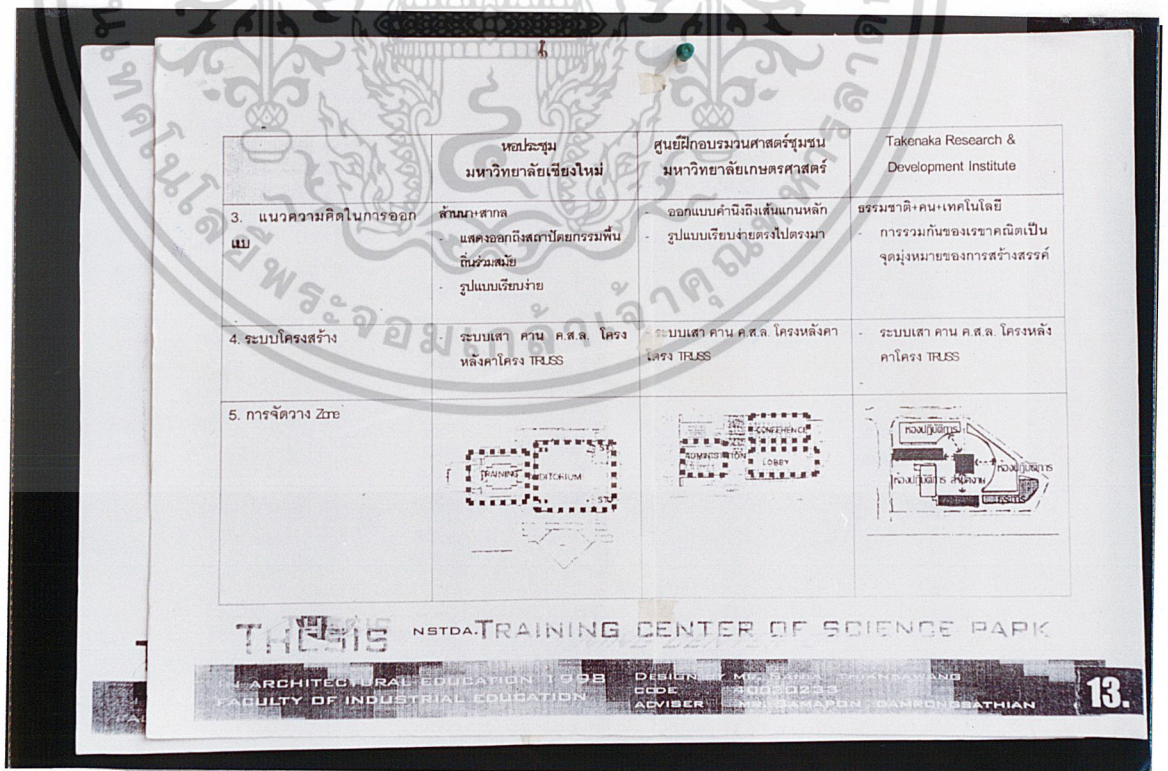 หอประชุม
มหาวิทยาลัยเชียงใหม่
ศูนย์ฝึกอบรมวนศาสตร์ชุมชน
มหาวิทยาลัยเกษตรศาสตร์
Takenaka Research &
Development Institute
3. แนวความคิดในการออก
แบบ
ล้านนา+สากล
- แสดงออกถึงสถาปัตยกรรมพื้น
ถิ่นร่วมสมัย
- รูปแบบเรียบง่าย
- ออกแบบคำนึงถึงเส้นแกนหลัก
- รูปแบบเรียบง่ายตรงไปตรงมา
ธรรมชาติ+คน+เทคโนโลยี
- การรวมกันของเรขาคณิตเป็น
จุดมุ่งหมายของการสร้างสรรค์
4. ระบบโครงสร้าง
- ระบบเสา คาน ค.ส.ล. โครง
หลังคาโครง TRUSS
- ระบบเสา คาน ค.ส.ล. โครงหลังคา
โครง TRUSS
- ระบบเสา คาน ค.ส.ล. โครงหลัง
คาโครง TRUSS
5. การจัดวาง Zone
TRAINING
DITORIUM
CONFERENCE
LOBBY
ห้องปฏิบัติการ
ห้องปฏิบัติการ
ห้องปฏิบัติการ สำนักงาน
THESIS NSTDA. TRAINING CENTER OF SCIENCE PARK
IN ARCHITECTURAL EDUCATION 1998
FACULTY OF INDUSTRIAL EDUCATION
DESIGN BY MR.
CODE 40030233
ADVISER MR. SAMAPON DAMRONGSATHIAN
13.
พระจอมเกล้าเจ้าคุณทหารลาด